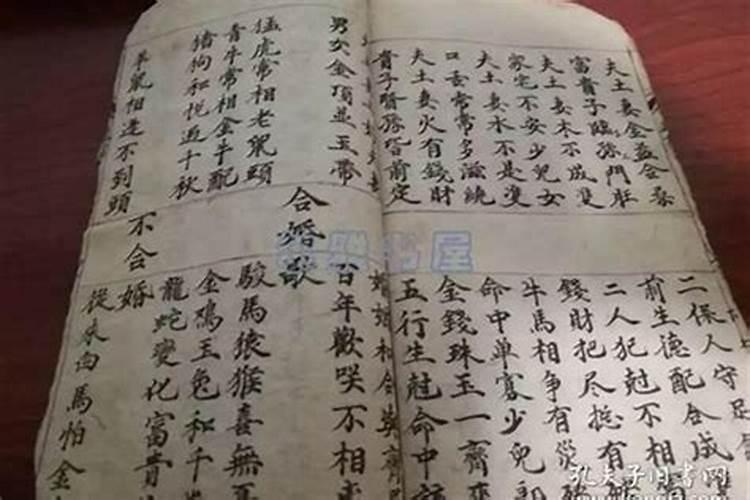 夫土妻金益合
富貴子臨孫門
夫土妻木不成雙
家宅不安少兒女
夫土妻水不是雙
口舌常常多滋繞
夫土妻火有錢財
貴子賢孫皆前定
二保人守足
前生德配合成
二人犯尅不相
錢財把尽挺有
牛馬相争有災
命中单寡少兒郎
金錢珠玉一齊來
五行生尅命中
婚姻和合
男女金頂並玉帶
猛虎常相老鼠頭
青牛常相金牛配
猪狗和悦过千秋
羊鼠相逢不到頭
合婚歌
百年歡咲不相
駿馬猿猴喜無
金鸡玉兔和千
龍蛇變化富貴
不合婚
從來白馬怕金
书屋
孔夫子旧书网